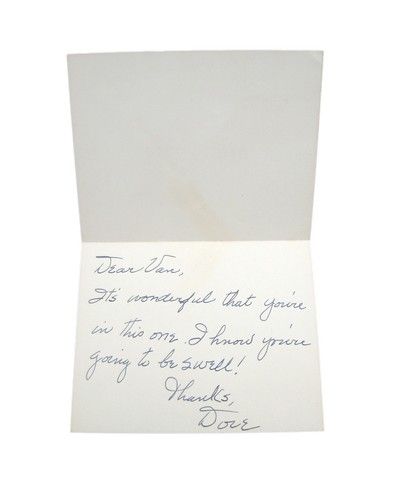 Dear Van,
It's wonderful that you're
in this one. I know you're
going to be swell!
Thanks,
Dore